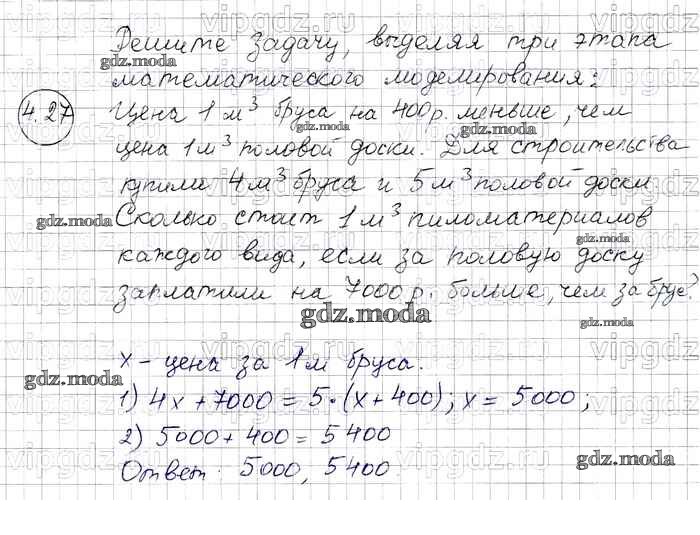 Решите задачу, выделяя три этапа
математического моделирования:
4.27
Цена 1 м³ бруса на 400р. меньше, чем
цена 1 м³ половой доски. Для строительства
купили 4 м³ бруса и 5 м³ половой доски
Сколько стоит 1 м³ пиломатериалов
каждого вида, если за половую доску
заплатили на 7000 р. больше, чем за брус?
x – цена за 1 м бруса.
1) 4x + 7000 = 5·(x + 400); x = 5000;
2) 5000 + 400 = 5400
Ответ: 5000, 5400
gdz.moda
vipgdz.ru